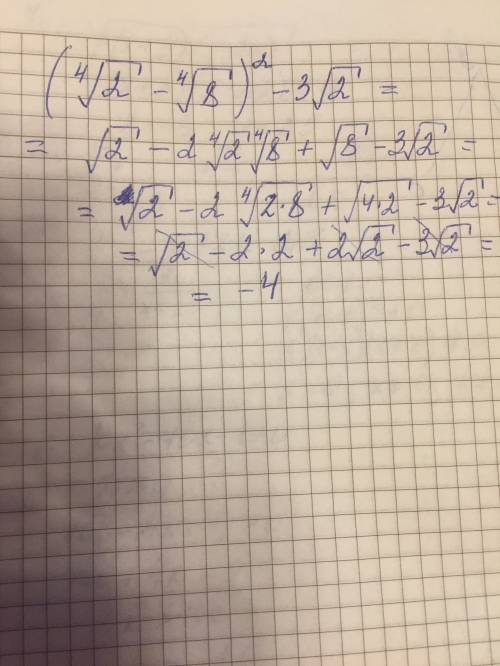 (∜2 - ∜8)² - 3√2 =
= √2 - 2 ∜2 ∜8 + √8 - 3√2 =
= √2 - 2 ∜2·8 + √4·2 - 3√2 =
= √2 - 2·2 + 2√2 - 3√2 =
= -4